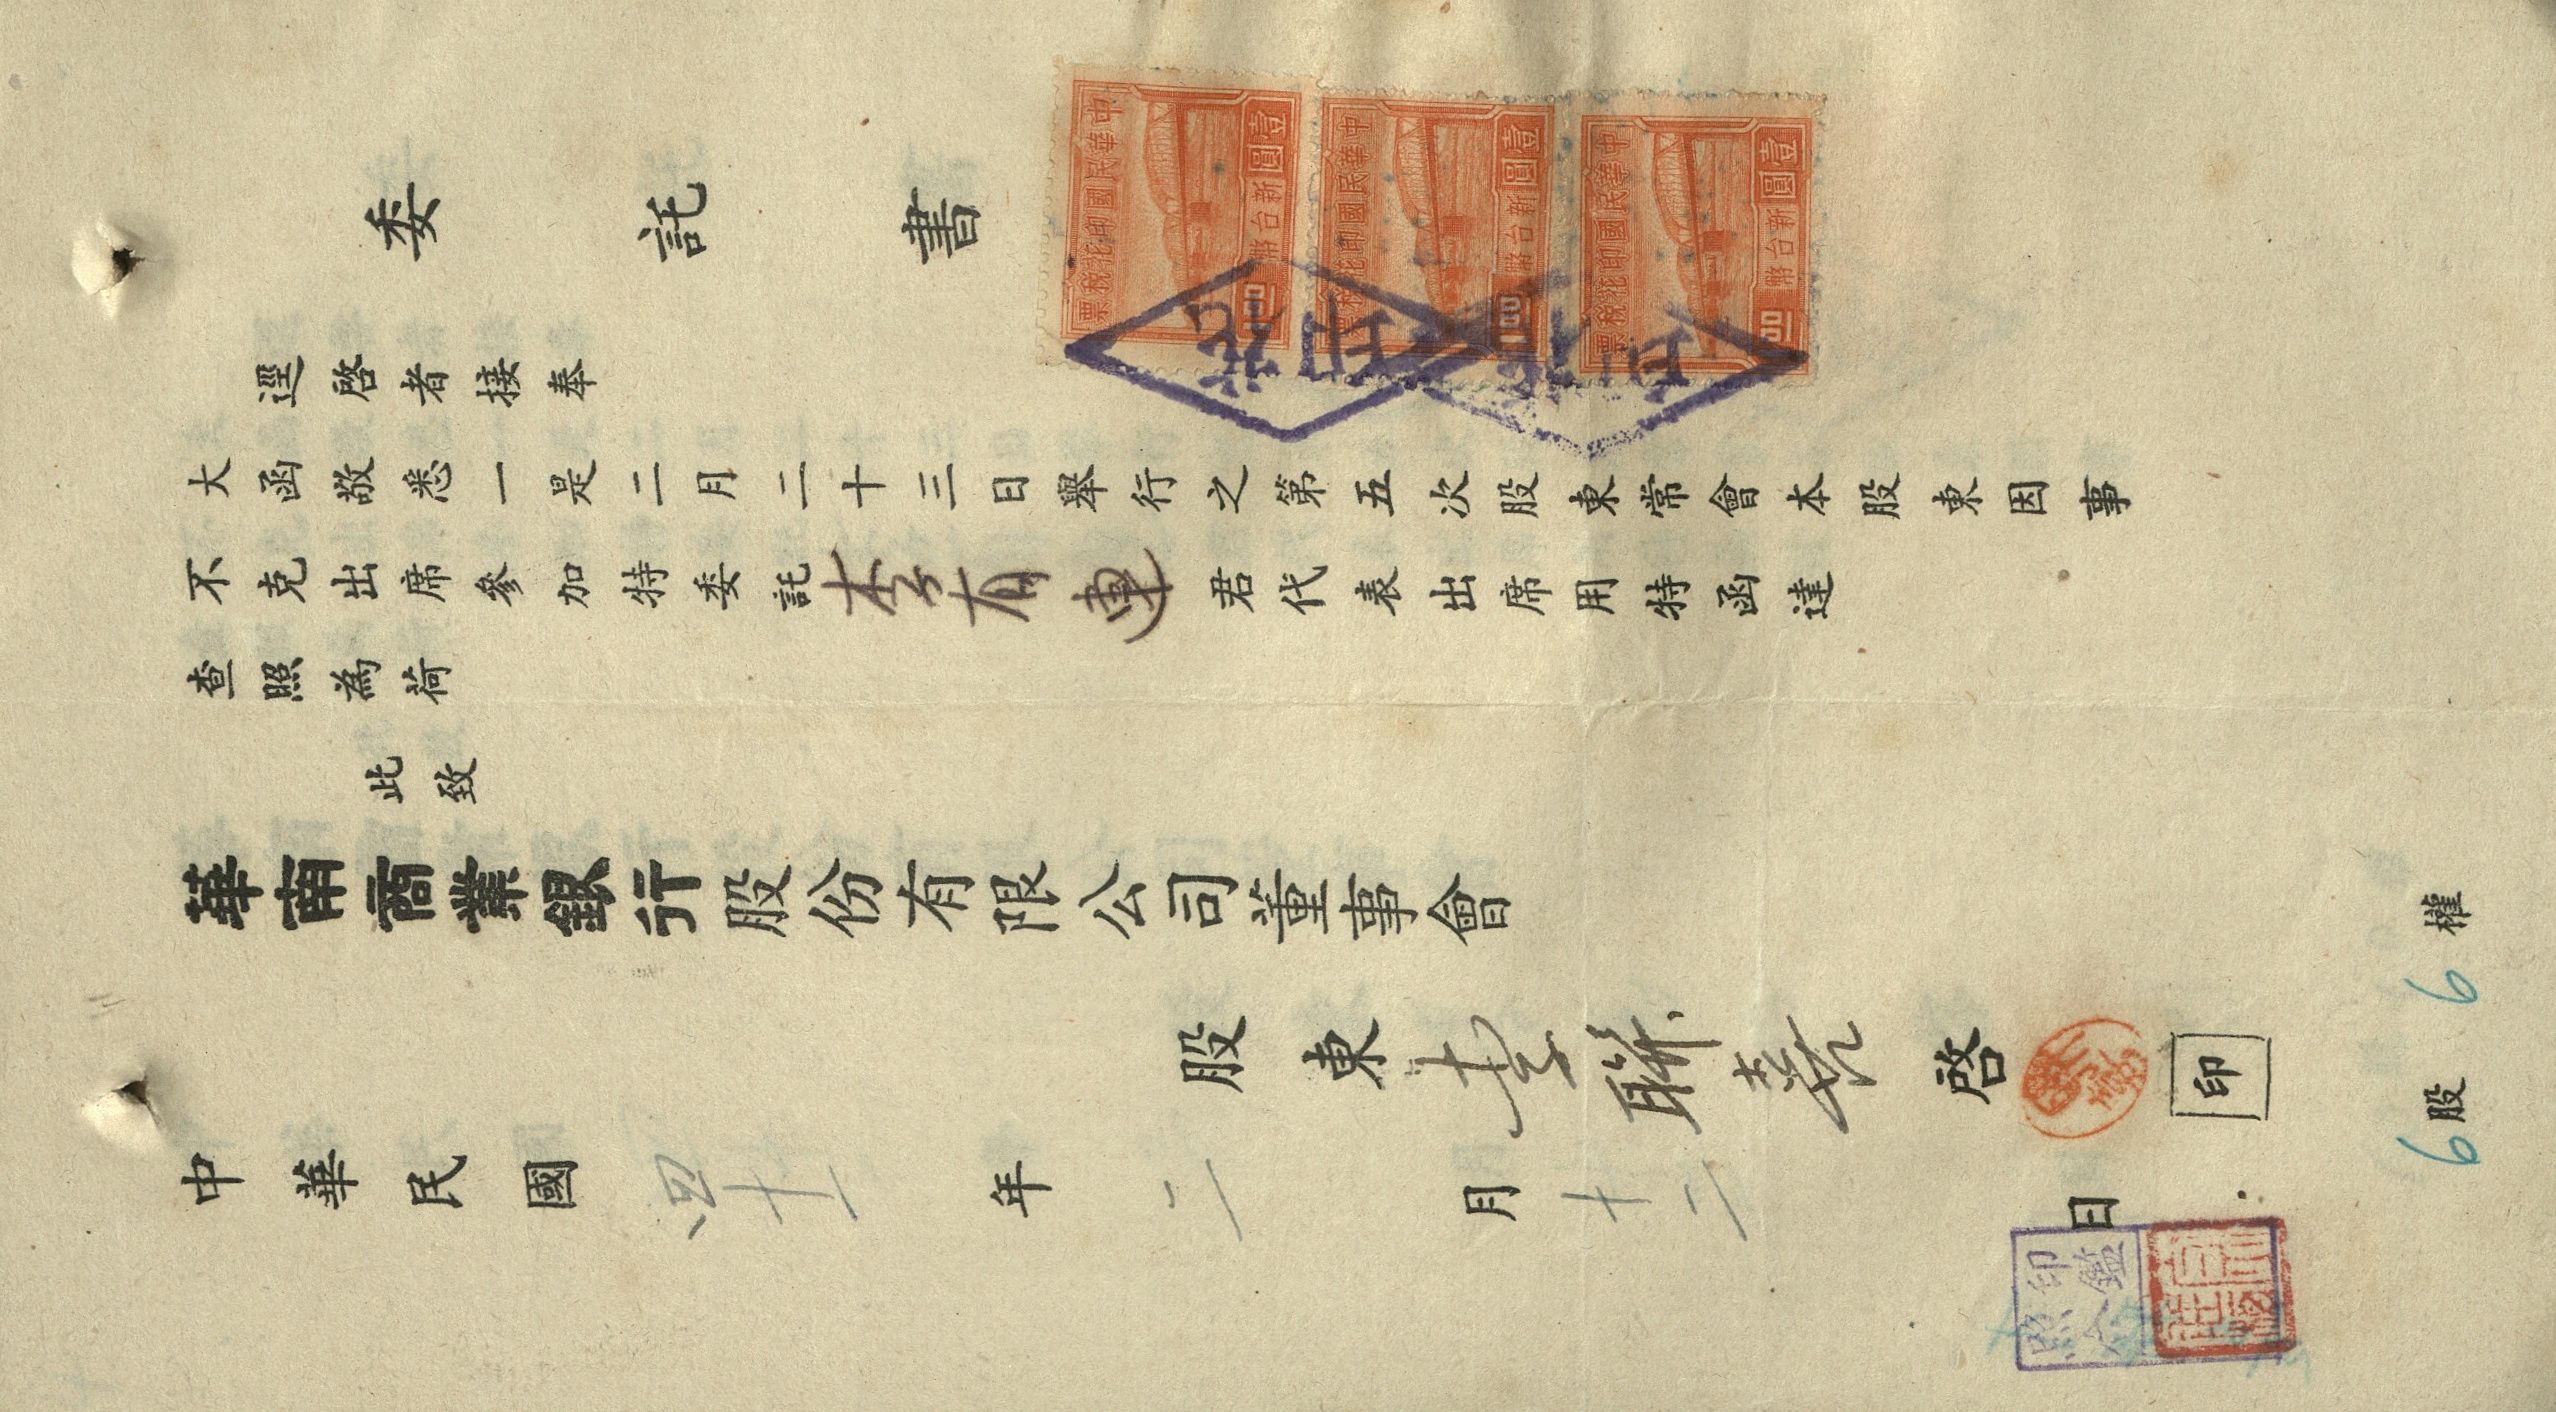 委託書
逕啓者接奉
大函敬悉一是二月二十三日舉行之第五次股東常會本股東因事
不克出席參加特委託李有連君代表出席用特函達
查照為荷
此致
華南商業銀行股份有限公司董事會
股東 聯 啓 印
中華民國四十二年二月十二日
6股 6權
中華民國印花稅票
壹圓
新台幣
1.00
中華民國印花稅票
壹圓
新台幣
1.00
中華民國印花稅票
壹圓
新台幣
印鑑